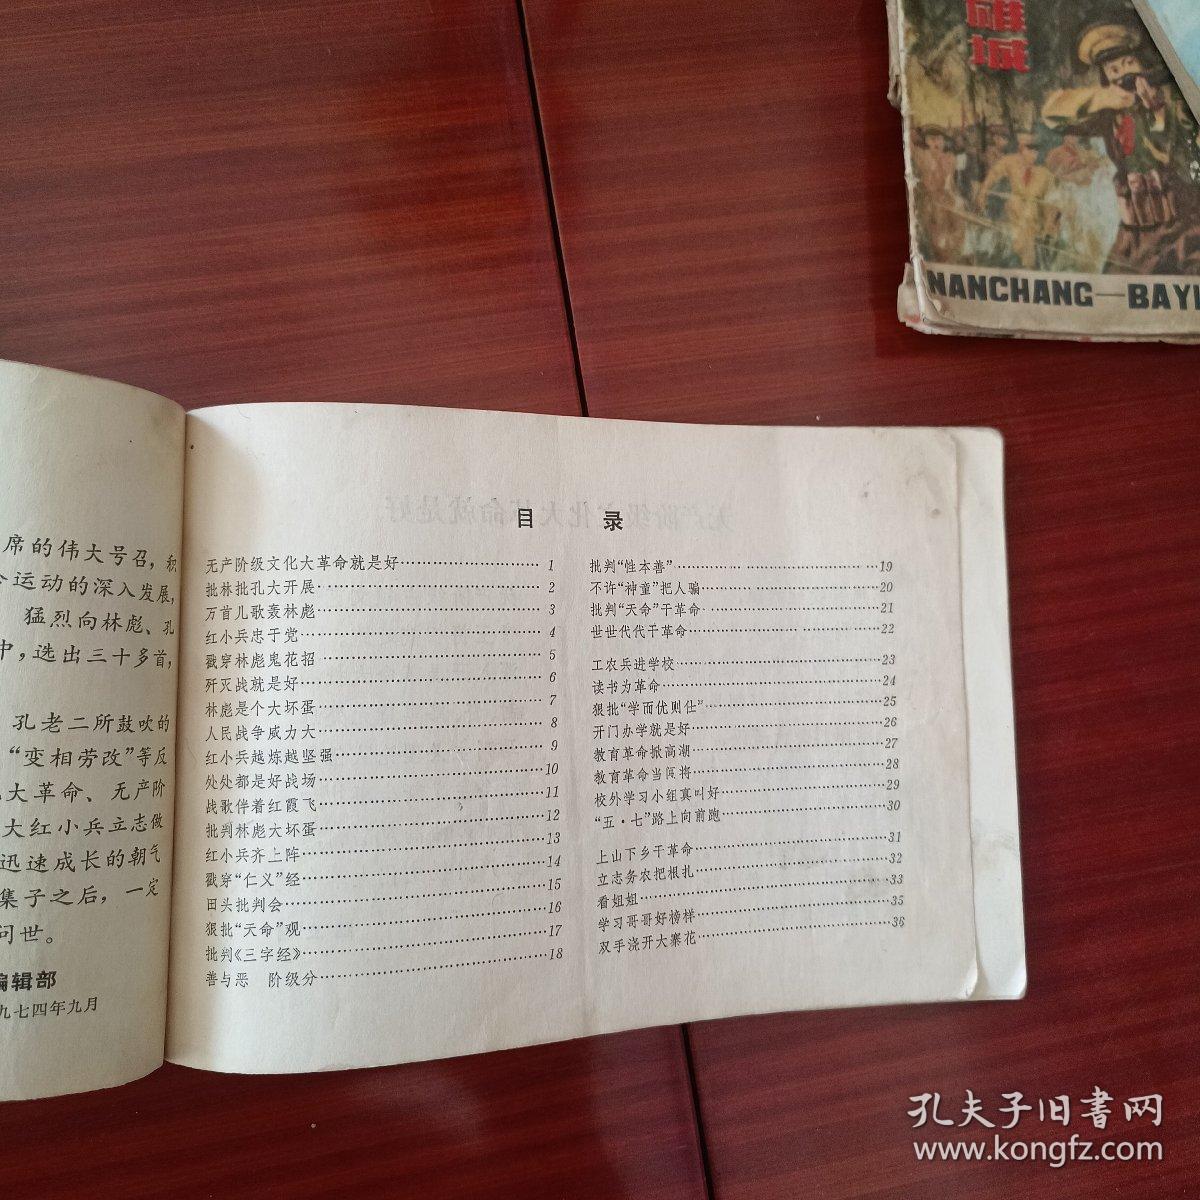 雄城
NANCHANG—BAYI
席的伟大号召，积
运动的深入发展，
猛烈向林彪、孔
中，选出三十多首，
孔老二所鼓吹的
“变相劳改”等反
大革命、无产阶
大红小兵立志做
迅速成长的朝气
集子之后，一定
问世。
编辑部
九七四年九月
目 录
无产阶级文化大革命就是好…………………… 1
批林批孔大开展…………………… 2
万首儿歌轰林彪…………………… 3
红小兵忠于党…………………… 4
戳穿林彪鬼花招…………………… 5
歼灭战就是好…………………… 6
林彪是个大坏蛋…………………… 7
人民战争威力大…………………… 8
红小兵越炼越坚强…………………… 9
处处都是好战场…………………… 10
战歌伴着红霞飞…………………… 11
批判林彪大坏蛋…………………… 12
红小兵齐上阵…………………… 13
戳穿“仁义”经…………………… 14
田头批判会…………………… 15
狠批“天命”观…………………… 16
批判《三字经》…………………… 17
善与恶 阶级分…………………… 18
批判“性本善”…………………… 19
不许“神童”把人骗…………………… 20
批判“天命”干革命…………………… 21
世世代代干革命…………………… 22
工农兵进学校…………………… 23
读书为革命…………………… 24
狠批“学而优则仕”…………………… 25
开门办学就是好…………………… 26
教育革命掀高潮…………………… 27
教育革命当闯将…………………… 28
校外学习小组真叫好…………………… 29
“五·七”路上向前跑…………………… 30
上山下乡干革命…………………… 31
立志务农把根扎…………………… 32
看姐姐…………………… 33
学习哥哥好榜样…………………… 35
双手浇开大寨花…………………… 36
孔夫子旧书网
www.kongfz.com